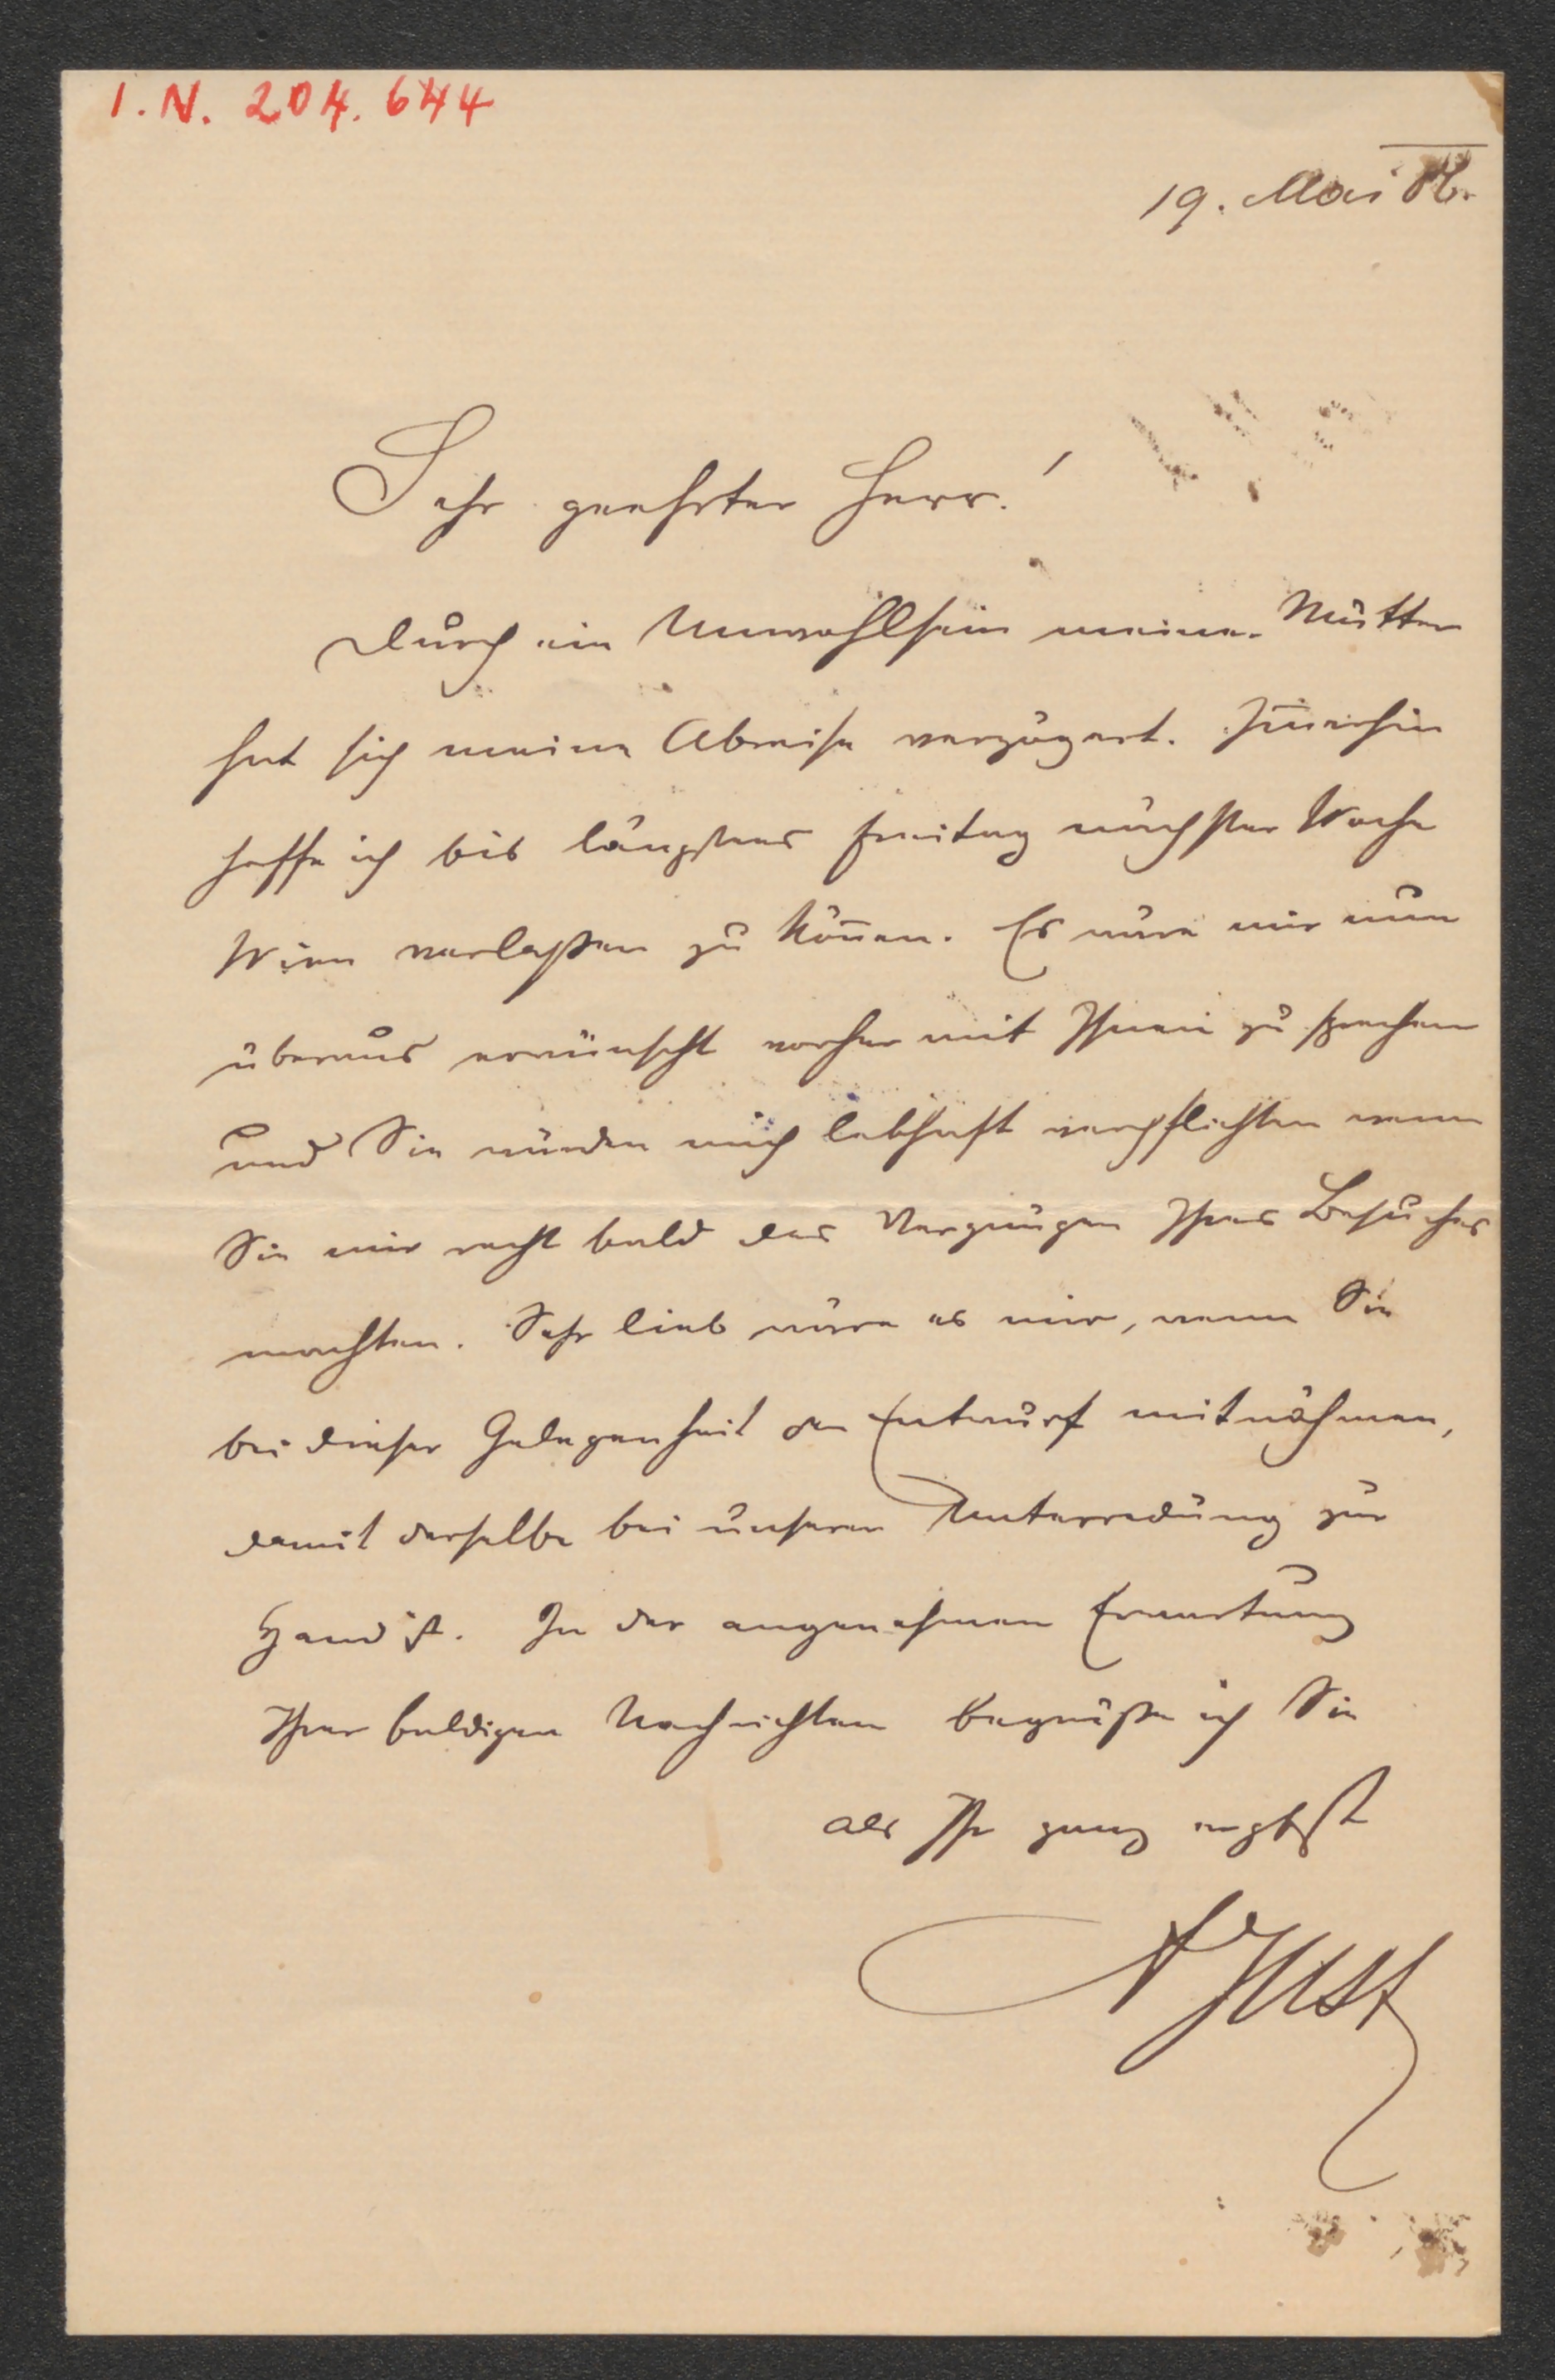 I. N. 204.644
19. Mai 86.
Sehr geehrter Herr!
Durch ein Unwohlsein meiner Mutter
hat sich meine Abreise verzögert. Im̄erhin
hoffe ich bis längstens Freitag nächster Woche
Wien verlaßen zu kön̄en. Es wäre mir nun
überaus erwünscht vorher mit Ihnen zu sprechen
und Sie würden mich lebhaft verpflichten wenn
Sie mir recht bald das Vergnügen Ihres Besuches
machten. Sehr lieb wäre es mir, wenn Sie
bei dieser Gelegenheit den Entwurf mitnähmen,
damit derselbe bei unserer Unterredung zur
Hand ist. In der angenehmen Erwartung
Ihrer baldigen Nachrichten begrüße ich Sie
als Ihr ganz ergbst
A Just